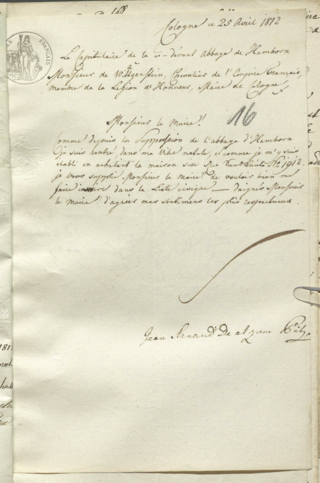 148
Cologne ce 25 Avril 1812
Le Capitulaire de la ci-devant abbaye de Hamborn
Monsieur de Wittgenstein, Chevalier de l'Empire français,
membre de la Légion d'Honneur, Maire de Cologne.
16
Monsieur le Maire!
Comme depuis la Suppression de l'abbaye d'Hamborn
je suis rentré dans ma ville natale, et comme je m'y suis
établi en achetant la maison sur N.º 1912.
je vous supplie Monsieur le maire de vouloir bien me
faire inscrire dans la Liste civique — daignez Monsieur
le Maire d'agréer mes sentimens les plus respectueux.
Jean Arnaud De